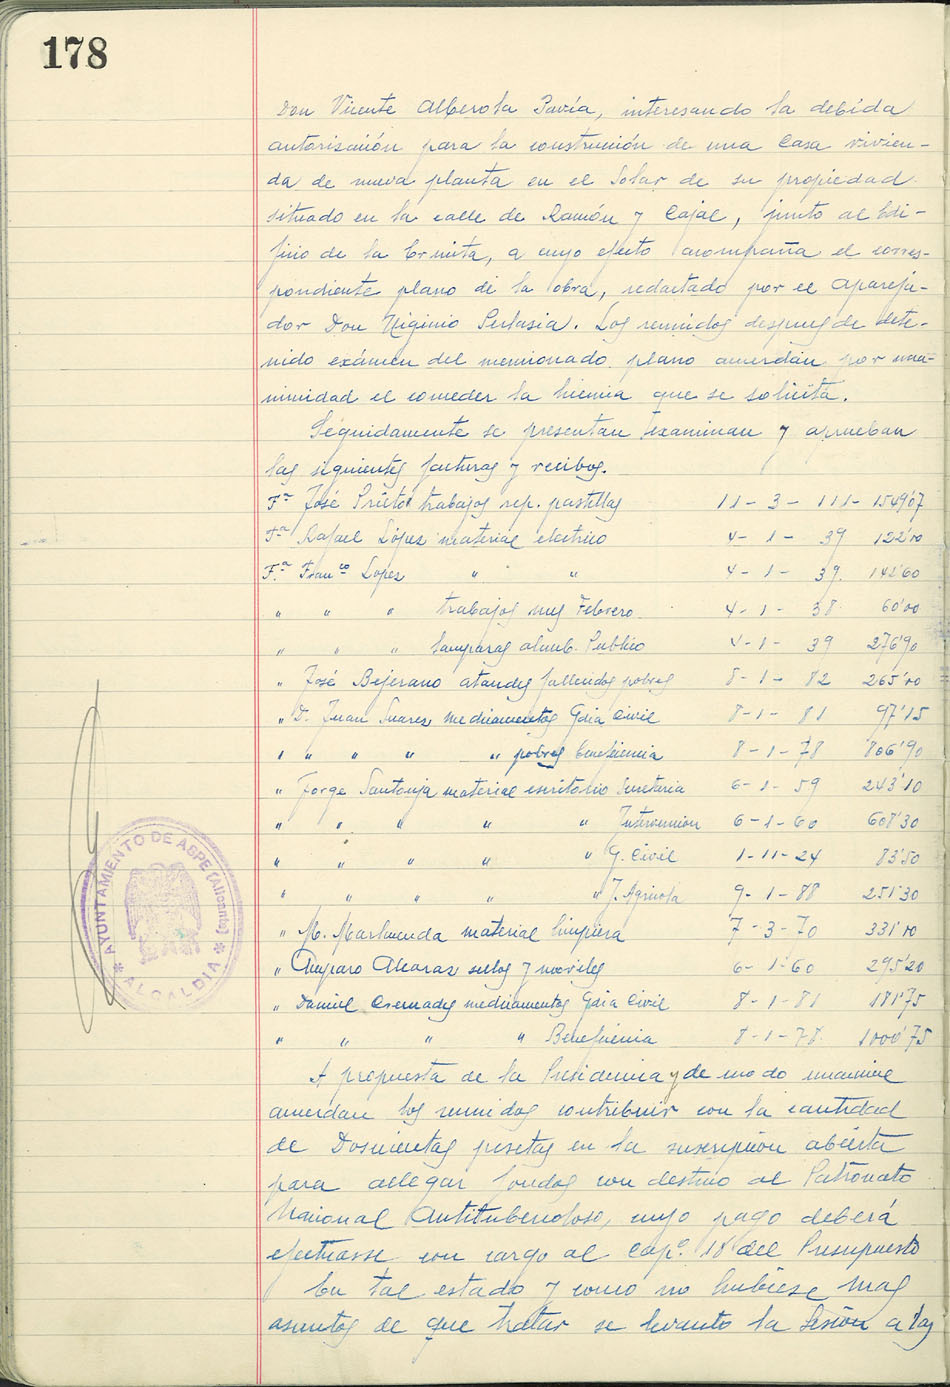 178
Don Vicente Alberola Pavía, interesando la debida
autorización para la construcción de una Casa vivien-
da de nueva planta en el Solar de su propiedad
situado en la calle de Ramón y Cajal, junto al Edi-
ficio de la Ermita, a cuyo efecto acompaña el corres-
pondiente plano de la obra, redactado por el apareja-
dor Don Higinio Perlasia. Los reunidos despues de dete-
nido exámen del mencionado plano acuerdan por una-
nimidad el conceder la licencia que se solicita.
Seguidamente se presentan examinan y aprueban
las siguientes facturas y recibos.
Fra José Prieto trabajos rep. pastillas 11-3-111- 1549'07
Fra Rafael López material electrico 4-1- 39 122'00
Fra Franco Lopez " " 4-1- 39. 142'60
" " " trabajos mes Febrero 4-1- 38 60'00
" " " lamparas alumb. Publico 4-1- 39 276'90
" José Bejerano ataudes fallecidos pobres 8-1- 82 265'00
" D. Juan Suarez medicamentos Gdia Civil 8-1- 81 97'15
" " " " " pobres beneficencia 8-1-78 806'90
" Jorge Santonja material escritorio Secretaria 6-1-59 243'10
" " " " " Intervencion 6-1-60 608'30
" " " " " G. Civil 1-11-24 83'50
" " " " " J. Agricola 9-1-88 251'30
" M. Marhuenda material limpieza 7-3-70 331'10
" Amparo Alcaraz sellos y moviles 6-1-60 295'20
" Daniel Cremades medicamentos Gdia Civil 8-1-81 181'75
" " " " Beneficencia 8-1-78. 1000'75
A propuesta de la Presidencia y de modo unanime
acuerdan los reunidos contribuir con la cantidad
de Doscientas pesetas en la suscripcion abierta
para allegar fondos con destino al Patronato
Nacional Antituberculoso, cuyo pago deberá
efectuarse con cargo al Capº. 18 del Presupuesto
En tal estado y como no hubiese mas
asuntos de que tratar se levanto la Sesión a las
AYUNTAMIENTO DE ASPE (Alicante)
* ALCALDIA *